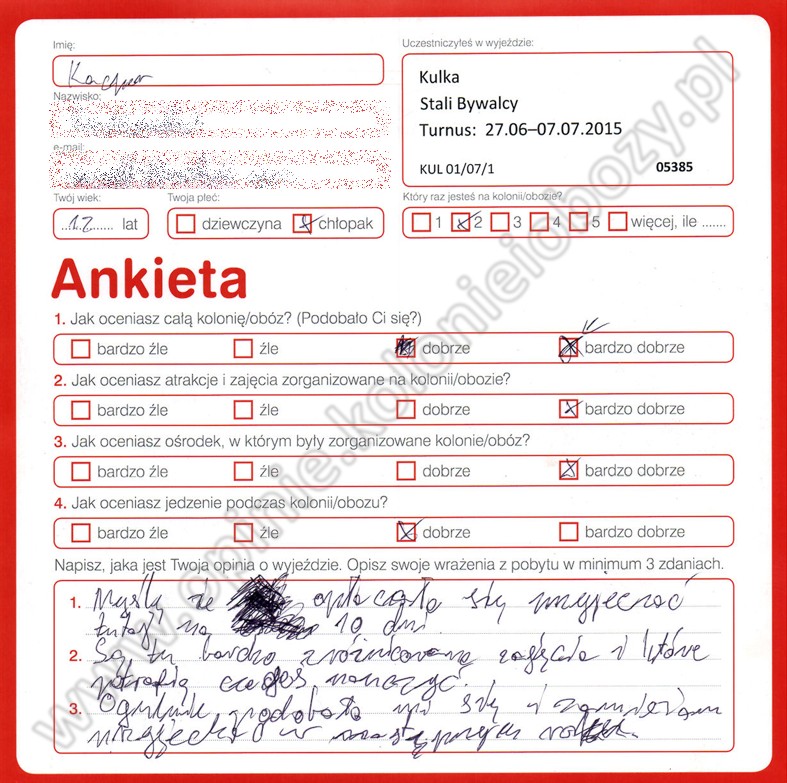 Imię:
Kacper
Nazwisko:
e-mail:
Uczestniczyłeś w wyjeździe:
Kulka
Stali Bywalcy
Turnus: 27.06–07.07.2015
KUL 01/07/1 05385
Twój wiek:
12 lat
Twoja płeć:
dziewczyna chłopak
Który raz jesteś na kolonii/obozie?
1 2 3 4 5 więcej, ile .......
Ankieta
1. Jak oceniasz całą kolonię/obóz? (Podobało Ci się?)
bardzo źle źle dobrze bardzo dobrze
2. Jak oceniasz atrakcje i zajęcia zorganizowane na kolonii/obozie?
bardzo źle źle dobrze bardzo dobrze
3. Jak oceniasz ośrodek, w którym były zorganizowane kolonie/obóz?
bardzo źle źle dobrze bardzo dobrze
4. Jak oceniasz jedzenie podczas kolonii/obozu?
bardzo źle źle dobrze bardzo dobrze
Napisz, jaka jest Twoja opinia o wyjeździe. Opisz swoje wrażenia z pobytu w minimum 3 zdaniach.
1. Myślę że opłacało się przyjechać
tutaj na 10 dni.
2. Są tu bardzo zróżnicowane zajęcia i które
potrafią czegoś nauczyć.
3. Ogólnie podobało mi się i zamierzam
przyjechać w następnym roku.
www.opinie.kolonieiobozy.pl